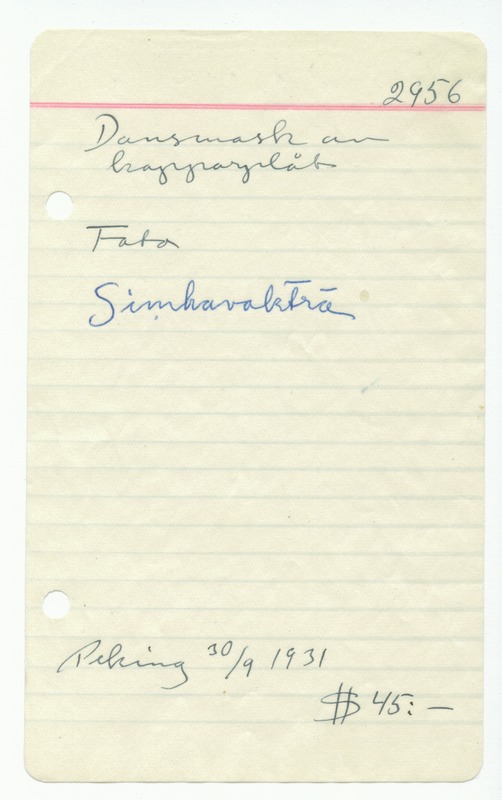 2956
Dansmask av
kopparplåt
Foto
Siṃhavaktrā
Peking 30/9 1931
$ 45:-